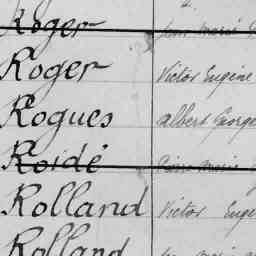 Roger Jean Marie
Roger Victor Eugène
Rogues Albert George
Roidé Pierre Marie
Rolland Victor Euge
Rolland Marie